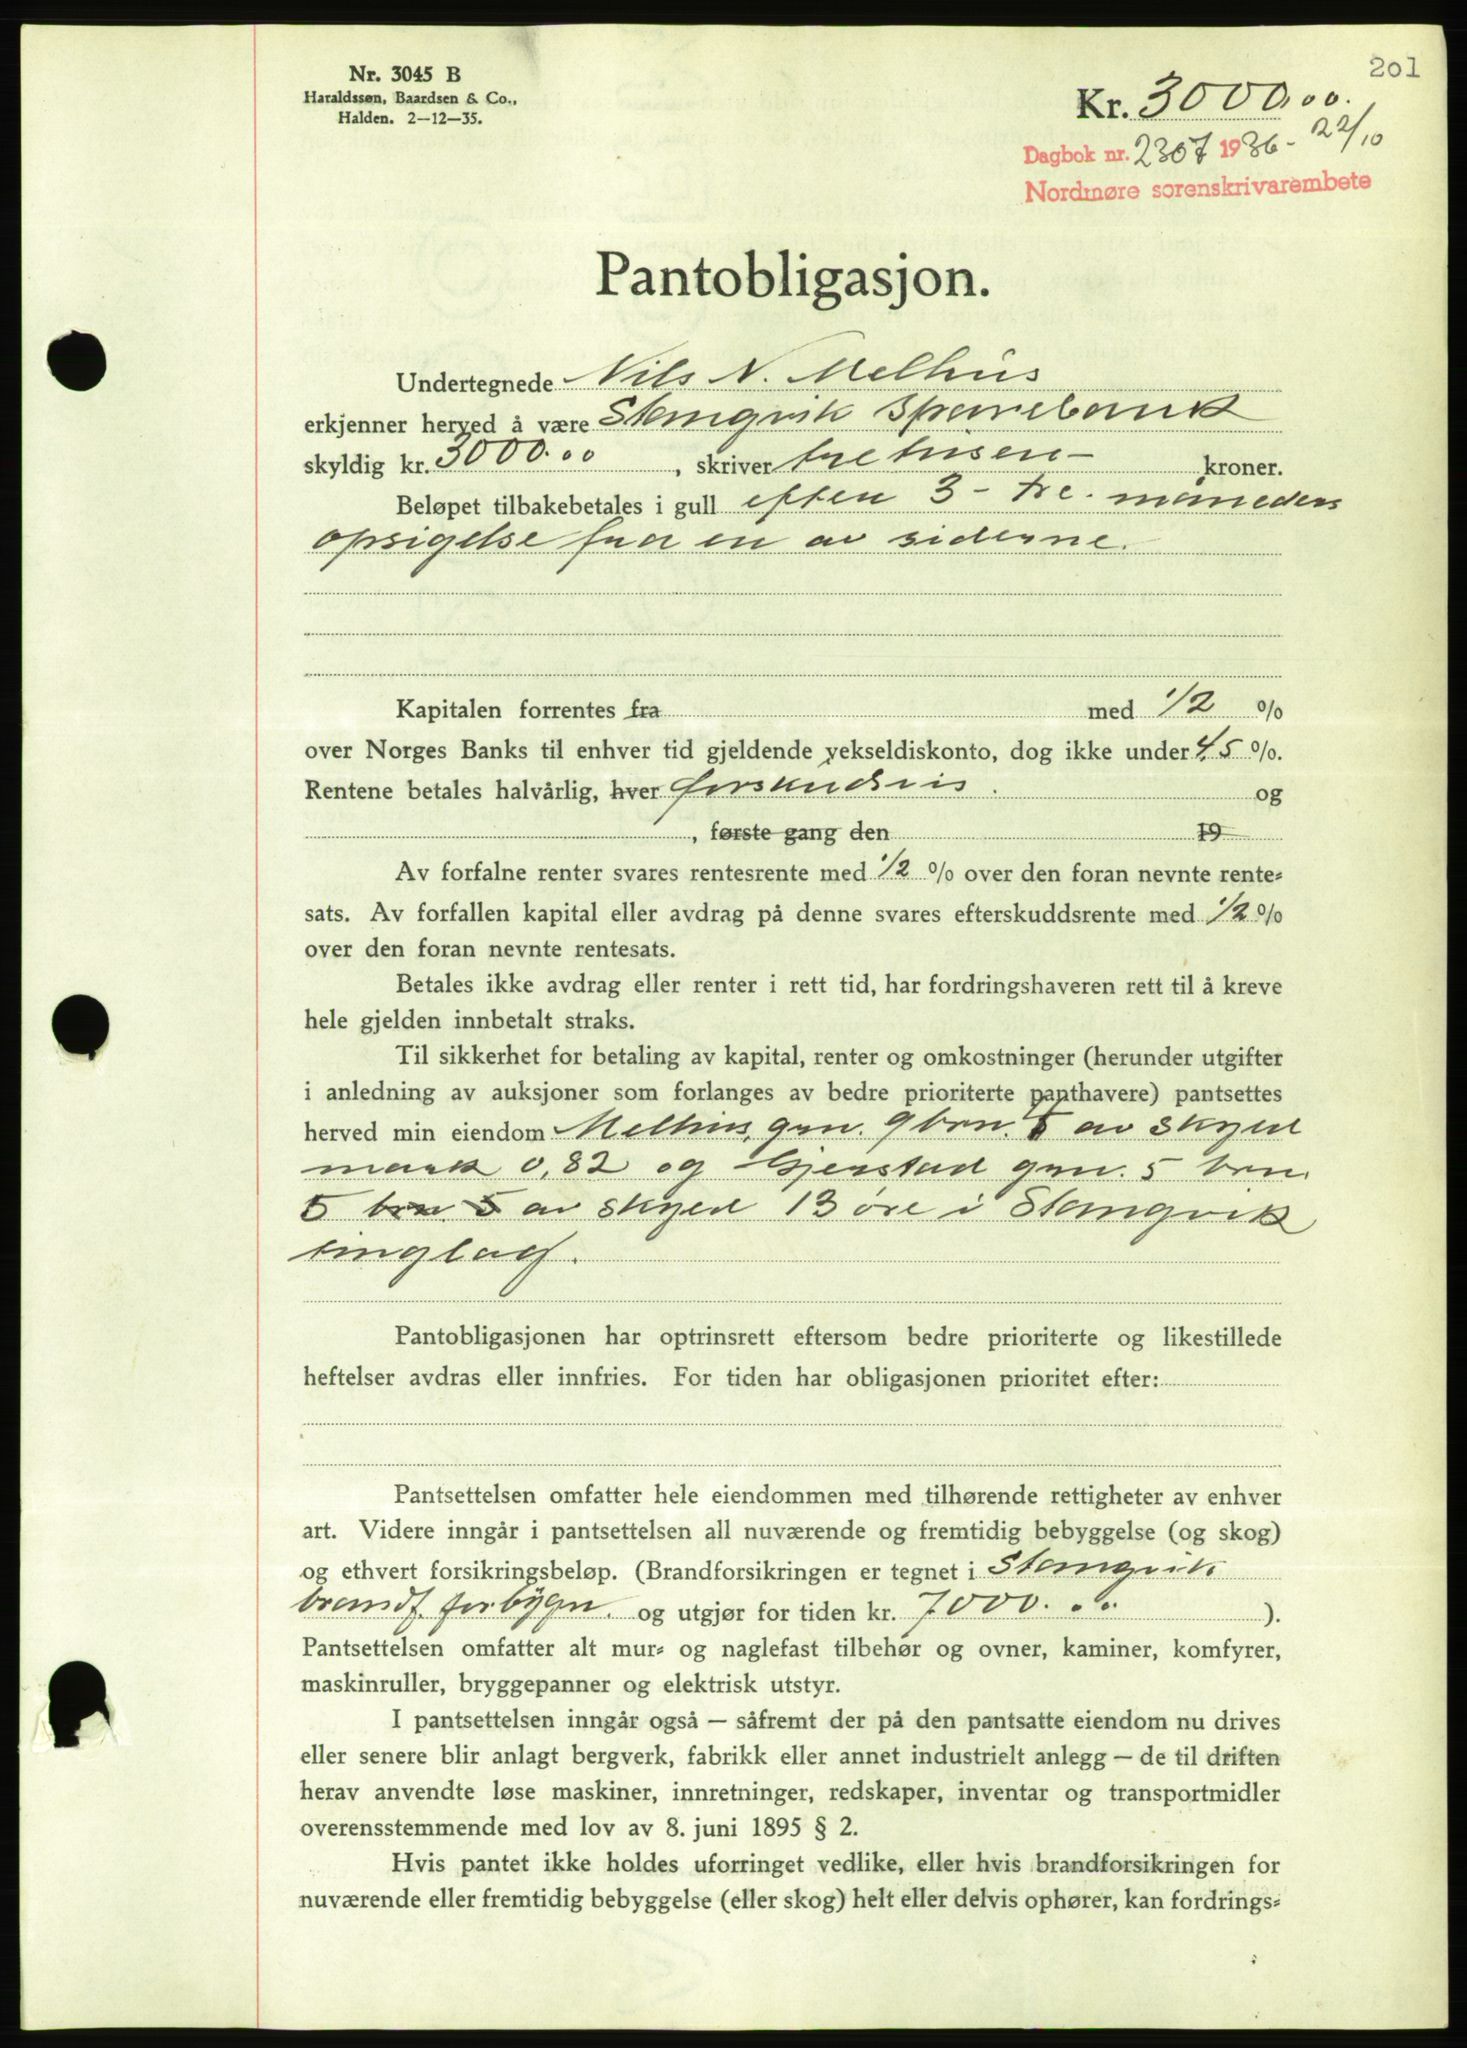 201
Nr. 3045 B
Haraldssøn, Baardsen & Co.,
Halden. 2—12—35.
Kr. 3000.00.
Dagbok nr. 2307 1936 - 22/10
Nordmøre sorenskrivarembete
Pantobligasjon.
Undertegnede Nils N. Melhus
erkjenner herved å være Stangvik Sparebank
skyldig kr. 3000.00, skriver tretusen- kroner.
Beløpet tilbakebetales i gull efter 3 - tre. måneders
opsigelse fra en av siderne.
Kapitalen forrentes fra med 1/2 %
over Norges Banks til enhver tid gjeldende vekseldiskonto, dog ikke under 4,5 %.
Rentene betales halvårlig, hver forskudsvis. og
, første gang den 19
Av forfalne renter svares rentesrente med 1/2 % over den foran nevnte rente=
sats. Av forfallen kapital eller avdrag på denne svares efterskuddsrente med 1/2 %
over den foran nevnte rentesats.
Betales ikke avdrag eller renter i rett tid, har fordringshaveren rett til å kreve
hele gjelden innbetalt straks.
Til sikkerhet for betaling av kapital, renter og omkostninger (herunder utgifter
i anledning av auksjoner som forlanges av bedre prioriterte panthavere) pantsettes
herved min eiendom Melhus, gnr. 9 brn. av skyld
mark 0,82 og Gjerstad gnr. 5 brn.
5 brn. 5 av skyld 13 øre i Stangvik
tinglag.
Pantobligasjonen har optrinsrett eftersom bedre prioriterte og likestillede
heftelser avdras eller innfries. For tiden har obligasjonen prioritet efter:
Pantsettelsen omfatter hele eiendommen med tilhørende rettigheter av enhver
art. Videre inngår i pantsettelsen all nuværende og fremtidig bebyggelse (og skog)
og ethvert forsikringsbeløp. (Brandforsikringen er tegnet i Stangvik
brandf. forbygn. og utgjør for tiden kr. 7000.00 ).
Pantsettelsen omfatter alt mur= og naglefast tilbehør og ovner, kaminer, komfyrer,
maskinruller, bryggepanner og elektrisk utstyr.
I pantsettelsen inngår også — såfremt der på den pantsatte eiendom nu drives
eller senere blir anlagt bergverk, fabrikk eller annet industrielt anlegg — de til driften
herav anvendte løse maskiner, innretninger, redskaper, inventar og transportmidler
overensstemmende med lov av 8. juni 1895 § 2.
Hvis pantet ikke holdes uforringet vedlike, eller hvis brandforsikringen for
nuværende eller fremtidig bebyggelse (eller skog) helt eller delvis ophører, kan fordrings=